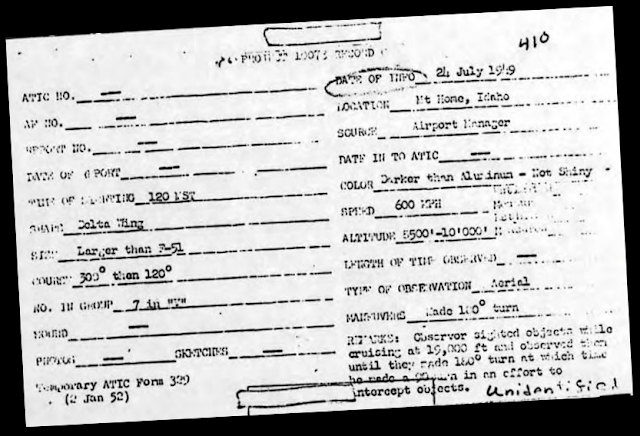 410
PROJECT 10073 RECORD
ATIC NO. —
AF NO. —
REPORT NO. —
DATE OF REPORT —
TIME OF SIGHTING 120 MST
SHAPE Delta Wing
SIZE Larger than F-51
COURSE 300° then 120°
NO. IN GROUP 7 in "V"
SOUND —
PHOTOS — SKETCHES —
Temporary ATIC Form 329
(2 Jan 52)
DATE OF INFO 24 July 1949
LOCATION Mt Home, Idaho
SOURCE Airport Manager
DATE IN TO ATIC —
COLOR Darker than Aluminum - Not Shiny
SPEED 600 MPH
ALTITUDE 8500'-10'000'
LENGTH OF TIME OBSERVED —
TYPE OF OBSERVATION Aerial
MANEUVERS Made 180° turn
REMARKS: Observor sighted objects while
cruising at 19,000 ft and observed them
until they made 180° turn at which time
he made a 90 turn in an effort to
intercept objects. Unidentified